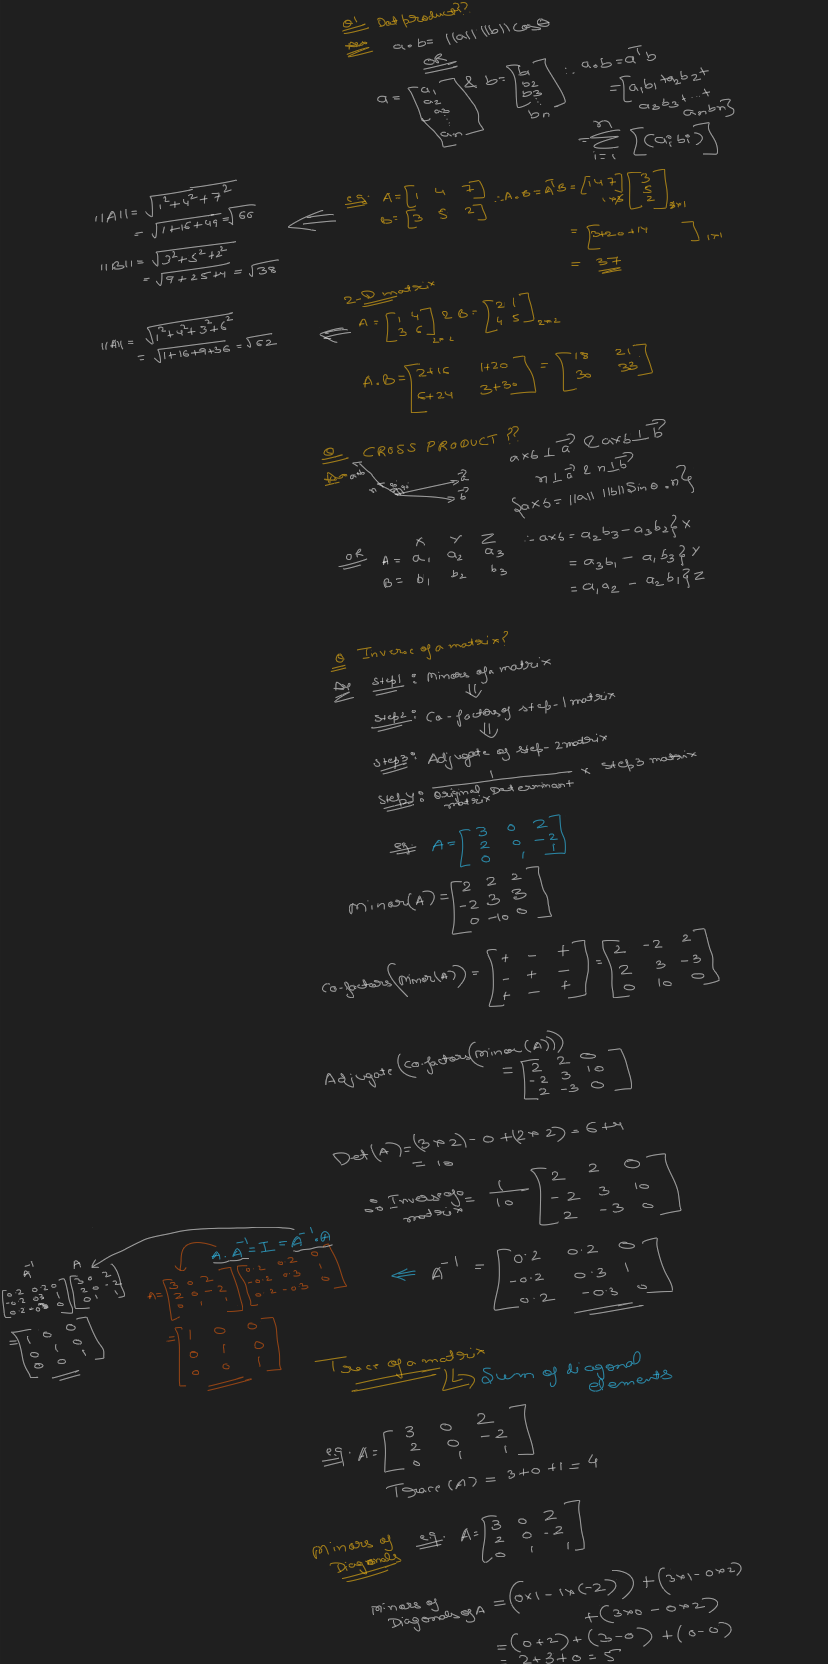 Q1 Dot product??
Ans a.b = ||a|| ||b|| cosθ
OR
a = [a1 a2 a3 : an] & b = [b1 b2 b3 : bn] ∴ a.b = a^T b
= [a1b1 + a2b2 +
a3b3 + ... +
anbn]
= n Σ i=1 [(ai bi)]
eg: A = [1 4 7] ∴ A.B = A^T B = [1 4 7] 1x3 [3 5 2] 3x1
B = [3 5 2]
= [3+20+14] 1x1
= 37
||A|| = √1²+4²+7²
= √1+16+49 = √66
||B|| = √3²+5²+2²
= √9+25+4 = √38
2-D matrix
A = [1 4 3 6] 2x2 & B = [2 1 4 5] 2x2
||A|| = √1²+4²+3²+6²
= √1+16+9+36 = √62
A.B = [2+16 1+20 = [18 21
6+24 3+30] 30 33]
Q CROSS PRODUCT ??
Ans axb n a b
axb ⊥ a & axb ⊥ b
n ⊥ a & n ⊥ b
{axb = ||a|| ||b|| Sinθ . n}
OR X Y Z
A = a1 a2 a3
B = b1 b2 b3
∴ axb = a2b3 - a3b2} X
= a3b1 - a1b3} Y
= a1a2 - a2b1} Z
Q Inverse of a matrix?
Ans Step1 : Minors of a matrix
⇓
Step2 : Co-factors of step-1 matrix
⇓
Step3 : Adjugate of step-2 matrix
Step4 : 1 / Original matrix Determinant x Step3 matrix
eg A = [3 0 2
2 0 -2
0 1 1]
Minor(A) = [2 2 2
-2 3 3
0 -10 0]
Co-factors(Minor(A)) = [+ - + = [2 -2 2
- + - 2 3 -3
+ - +] 0 10 0]
Adjugate(Co-factors(Minor(A)))
= [2 2 0
-2 3 10
2 -3 0]
Det(A) = (3*2) - 0 + (2*2) = 6+4
= 10
∴ Inverse of matrix = 1/10 [2 2 0
-2 3 10
2 -3 0]
A^-1 = [0.2 0.2 0
-0.2 0.3 1
0.2 -0.3 0]
A.A^-1 = I = A^-1.A
A = [3 0 2 [0.2 0.2 0
2 0 -2 -0.2 0.3 1
0 1 1] 0.2 -0.3 0]
= [1 0 0
0 1 0
0 0 1]
A^-1 A
[0.2 0.2 0 [3 0 2
-0.2 0.3 1 2 0 -2
0.2 -0.3 0] 0 1 1]
= [1 0 0
0 1 0
0 0 1]
Trace of a matrix
Sum of diagonal
elements
eg. A = [3 0 2
2 0 -2
0 1 1]
Trace(A) = 3+0+1 = 4
Minors of
Diagonals
eg. A = [3 0 2
2 0 -2
0 1 1]
Minors of
Diagonals of A = (0x1 - 1x(-2)) + (3x1 - 0x2)
+ (3x0 - 0x2)
= (0+2) + (3-0) + (0-0)
= 2+3+0 = 5